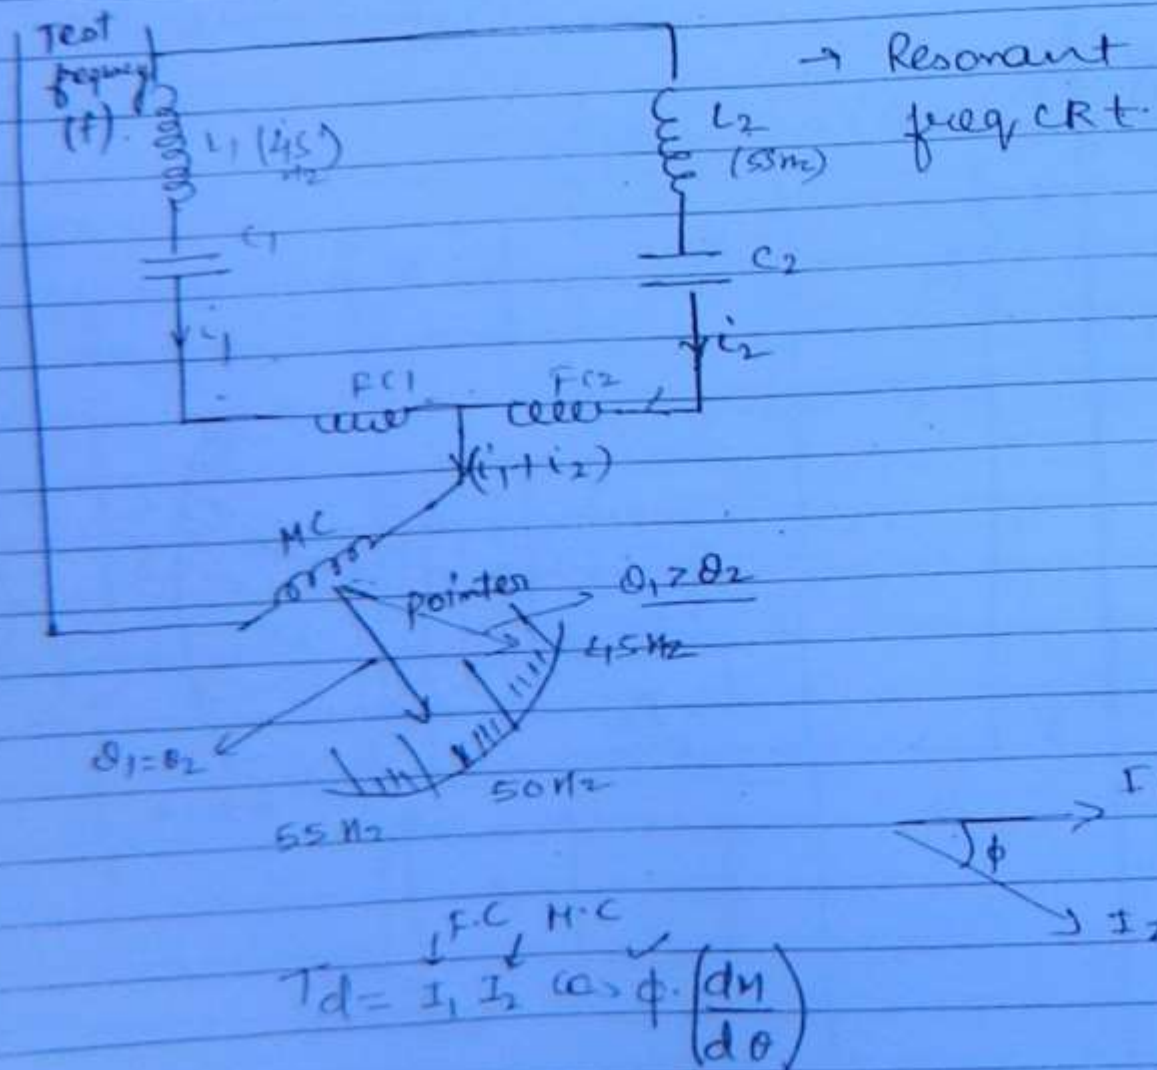 Test
frequency
(f).
→ Resonant
freq CRt.
L1 (45
Hz)
L2
(55Hz)
C1
C2
i1
i2
FC1
FC2
(i1+i2)
MC
pointer
θ1>θ2
45Hz
θ1=θ2
50Hz
55Hz
I
ϕ
I2
F.C M.C
Td = I1 I2 cos ϕ. (dM/dθ)